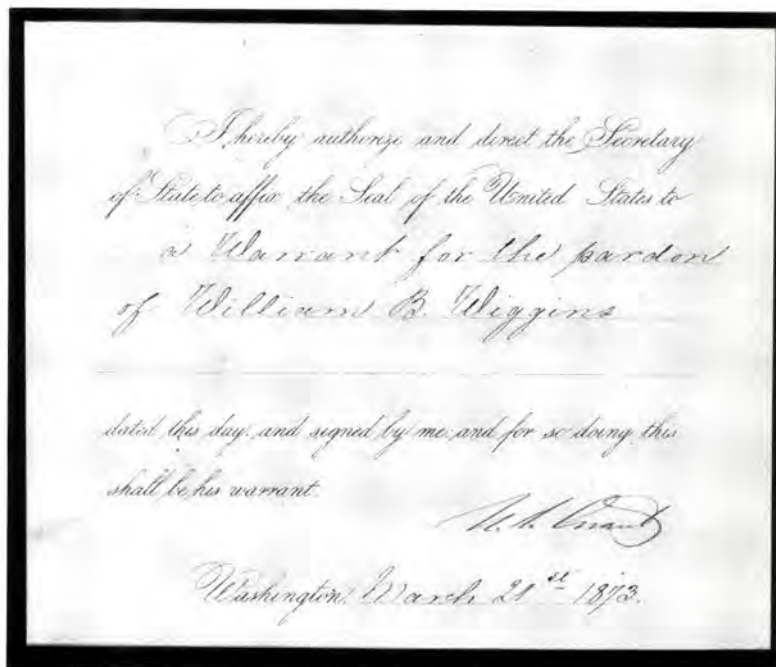 I hereby authorize and direct the Secretary
of State to affix the Seal of the United States to
a Warrant for the pardon
of William B. Wiggins
dated this day, and signed by me: and for so doing this
shall be his warrant.
U. S. Grant
Washington, March 21st 1873.